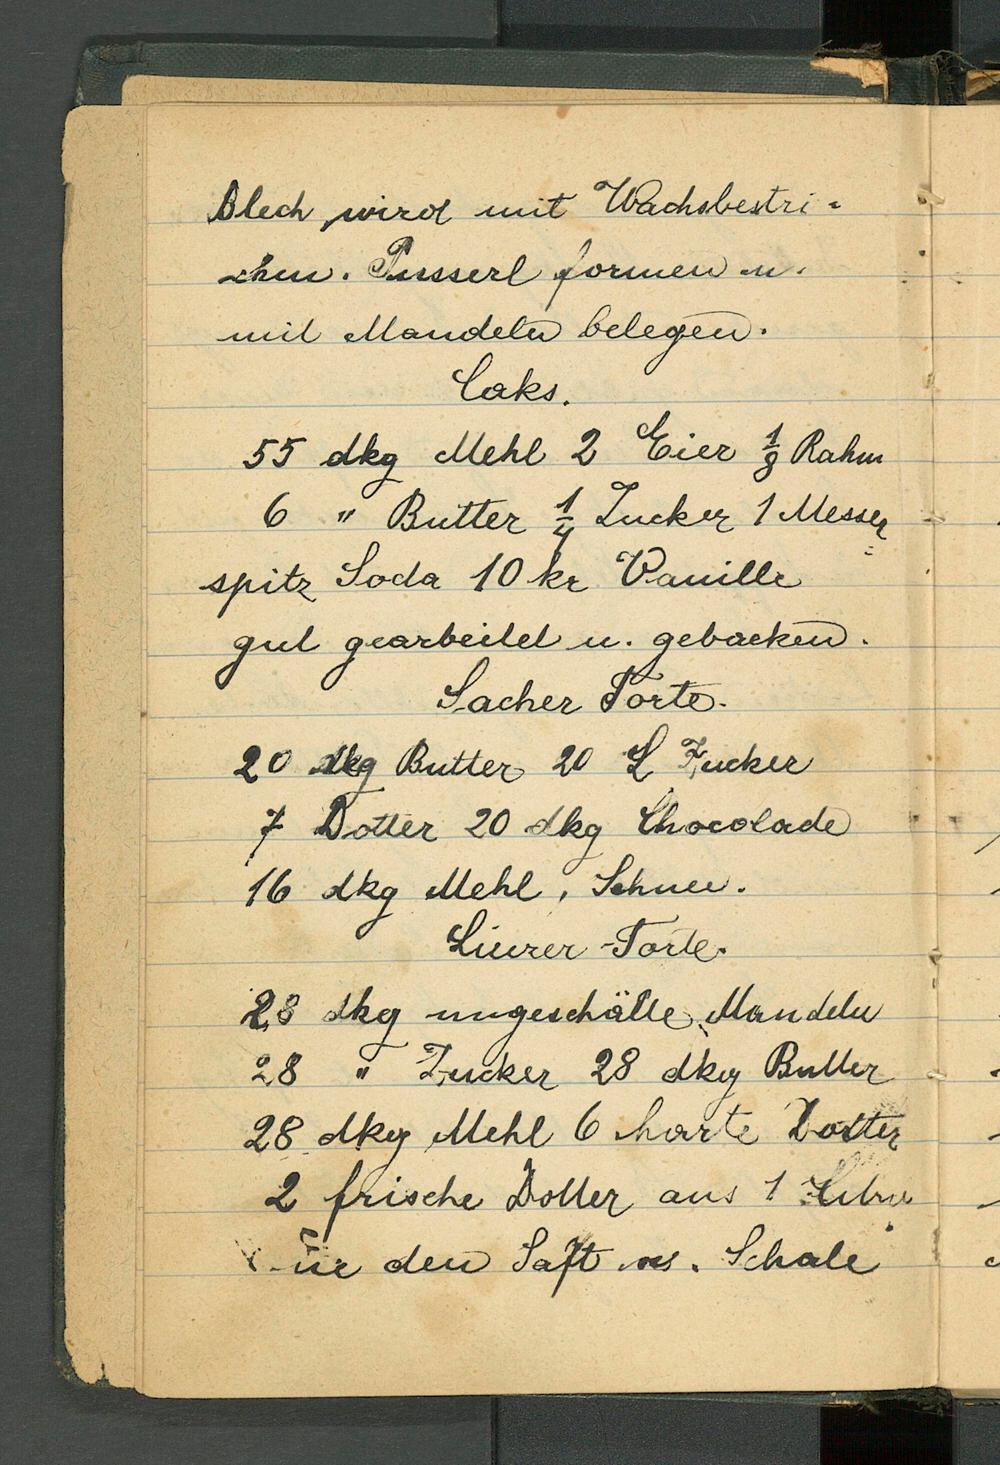 Blech wird mit Wachsbestri-
chen. Pusserl formen u.
mit Mandeln belegen.
Caks.
55 dkg Mehl 2 Eier 1/8 Rahm
6 " Butter 1/4 Zucker 1 Messer=
spitz Soda 10 kr Vanille
gut gearbeitet u. gebacken.
Sacher Torte.
20 dkg Butter 20 Zucker
7 Dotter 20 dkg Chocolade
16 dkg Mehl, Schnee.
Linzer-Torte.
28 dkg ungeschälte Mandeln
28 " Zucker 28 dkg Butter
28 dkg Mehl 6 harte Dotter
2 frische Dotter aus 1
den Saft u. Schale